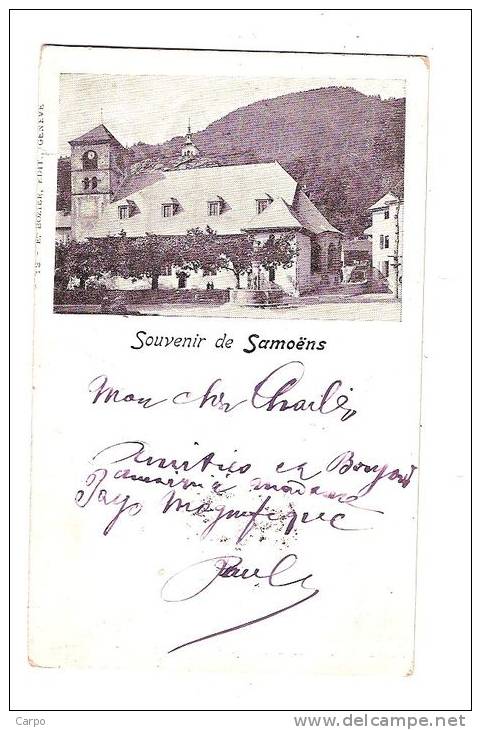 12 - E. BOXIER, EDIT. GENÈVE
Souvenir de Samoëns
Mon cher Charles,
Amitiés
madame
Pays Magnifique
Paul
Carpo
www.delcampe.net